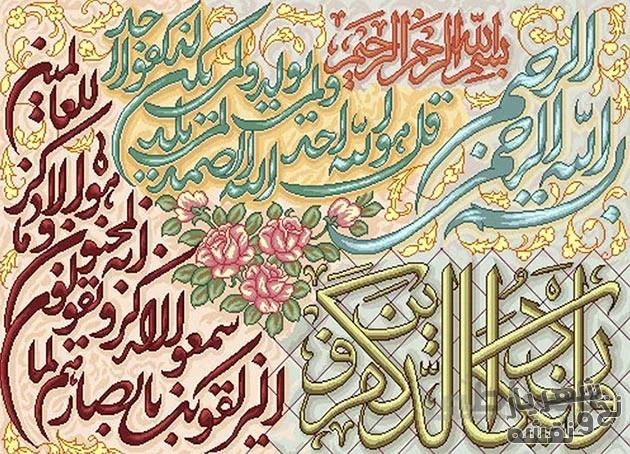 بسم الله الرحمن الرحيم
بسم الله الرحمن الرحيم
قل هو الله احد الله الصمد لم يلد
ولم يولد ولم يكن له كفوا احد
وان يكاد الذين كفروا
ليزلقونك بابصارهم لما
سمعوا الذكر ويقولون
انه لمجنون وما
هو الا ذكر
للعالمين
شهریار
نخ و نقشه